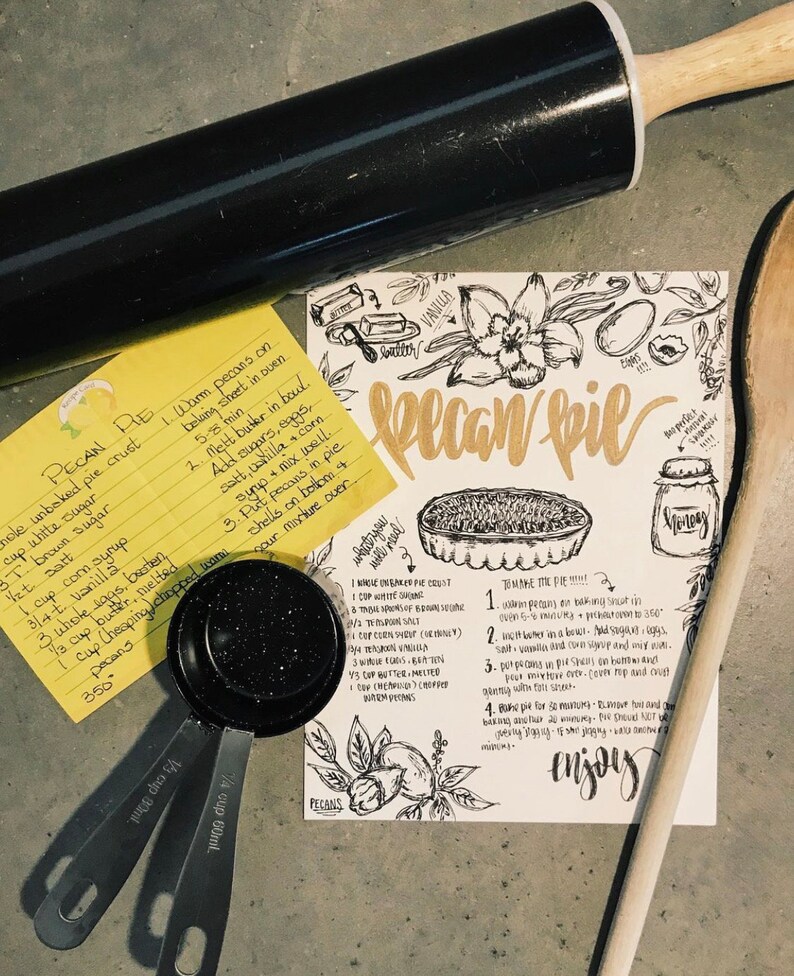 BUTTER
butter
VANILLA
EGGS
!!!!
pecan pie
!!!!
honey
what you
will need
1 WHOLE UNBAKED PIE CRUST
1 CUP WHITE SUGAR
3 TABLESPOONS OF BROWN SUGAR
1/2 TEASPOON SALT
1 CUP CORN SYRUP (OR HONEY)
3/4 TEASPOON VANILLA
3 WHOLE EGGS, BEATEN
1/3 CUP BUTTER, MELTED
1 CUP (HEAPING!) CHOPPED
WARM PECANS
TO MAKE THE PIE!!!!!!
1. warm pecans on baking sheet in
oven 5-8 minutes + preheat oven to 350°
2. melt butter in a bowl. Add sugars, eggs,
salt, vanilla and corn syrup and mix well.
3. put pecans in pie shells on bottom and
pour mixture over. cover top and crust
gently with foil sheet.
4. Bake pie for 30 minutes. Remove foil and
baking another 20 minutes. Pie should NOT be
overly jiggly. IF still jiggly, bake another
minutes.
enjoy
PECANS
Recipe Card
PECAN PIE
whole unbaked pie crust
cup white sugar
3 T brown sugar
1/2 t. salt
1 cup corn syrup
3/4 t. vanilla
3 whole eggs, beaten
1/3 cup butter, melted
1 cup (heaping) chopped warm
pecans
350°
1. Warm pecans on
baking sheet in oven
5-8 min
2. Melt butter in bowl.
Add sugars, eggs,
salt, vanilla + corn
syrup + mix well.
3. Put pecans in pie
shells on bottom +
pour mixture over.
1/3 cup 80ml
1/4 cup 60ML